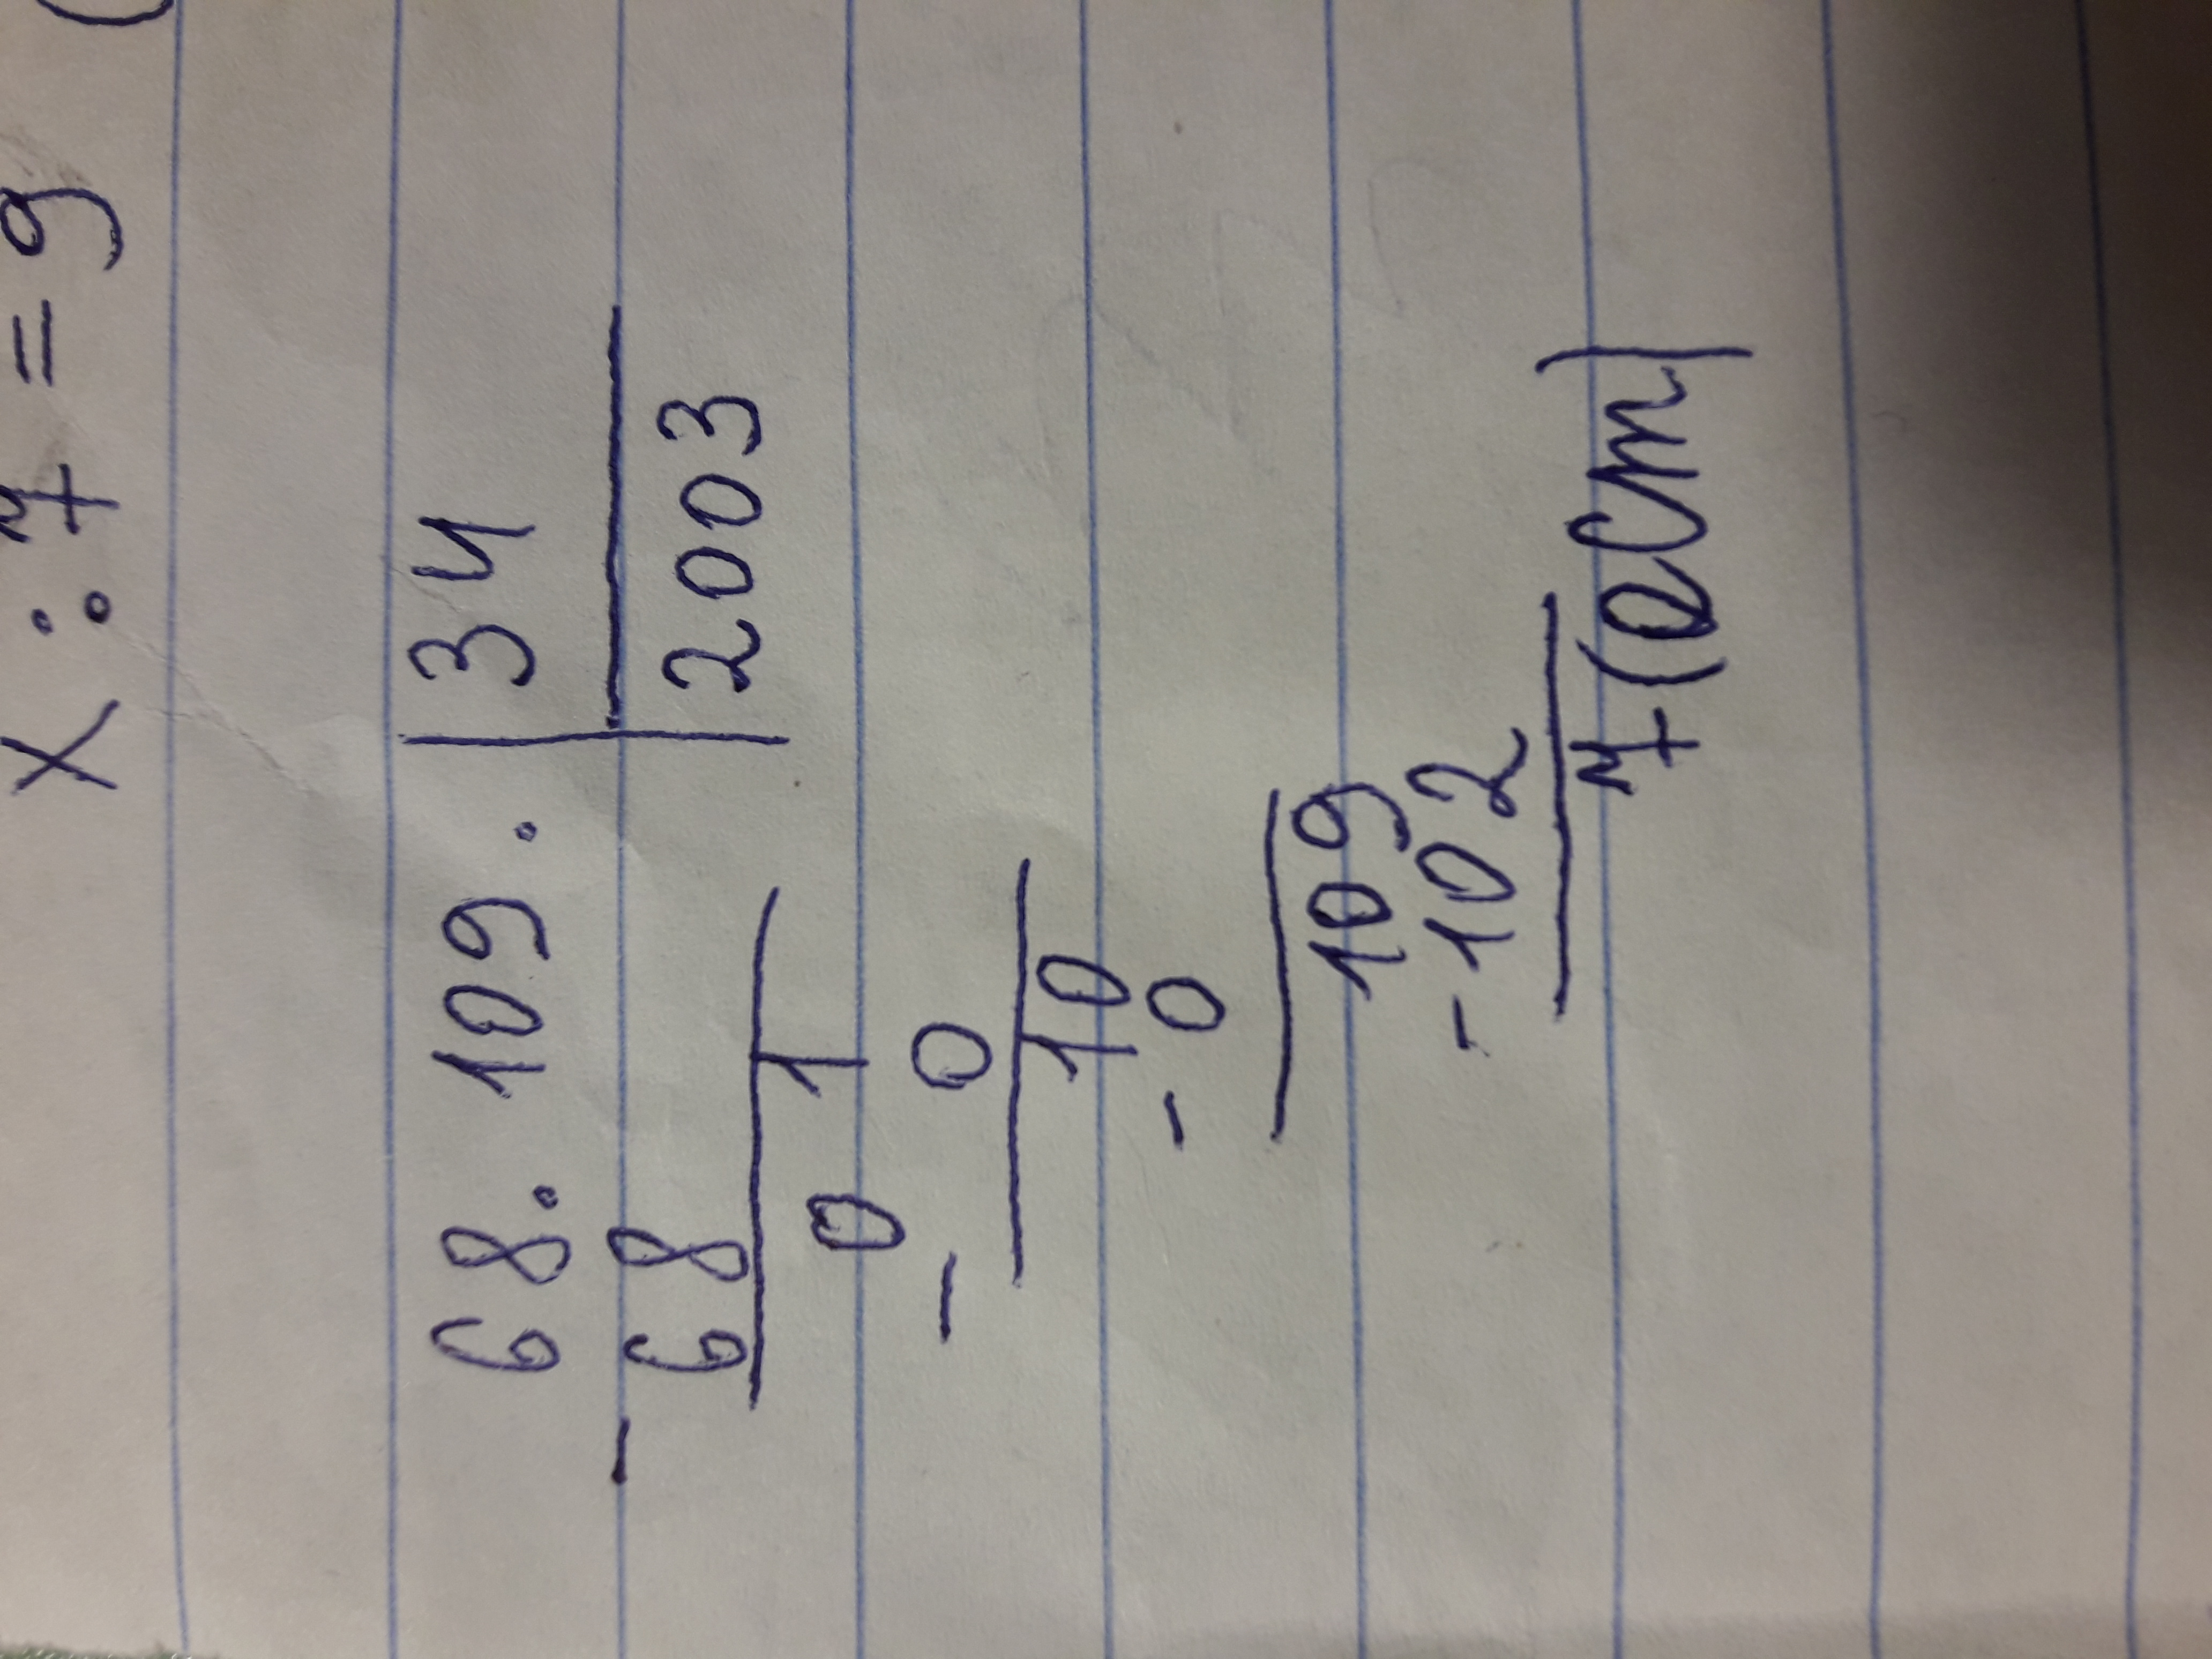 x : 7 = 9
68. 109. | 34
- 68 | 2003
0 1
- 0
10
- 0
109
- 102
7 (ост)